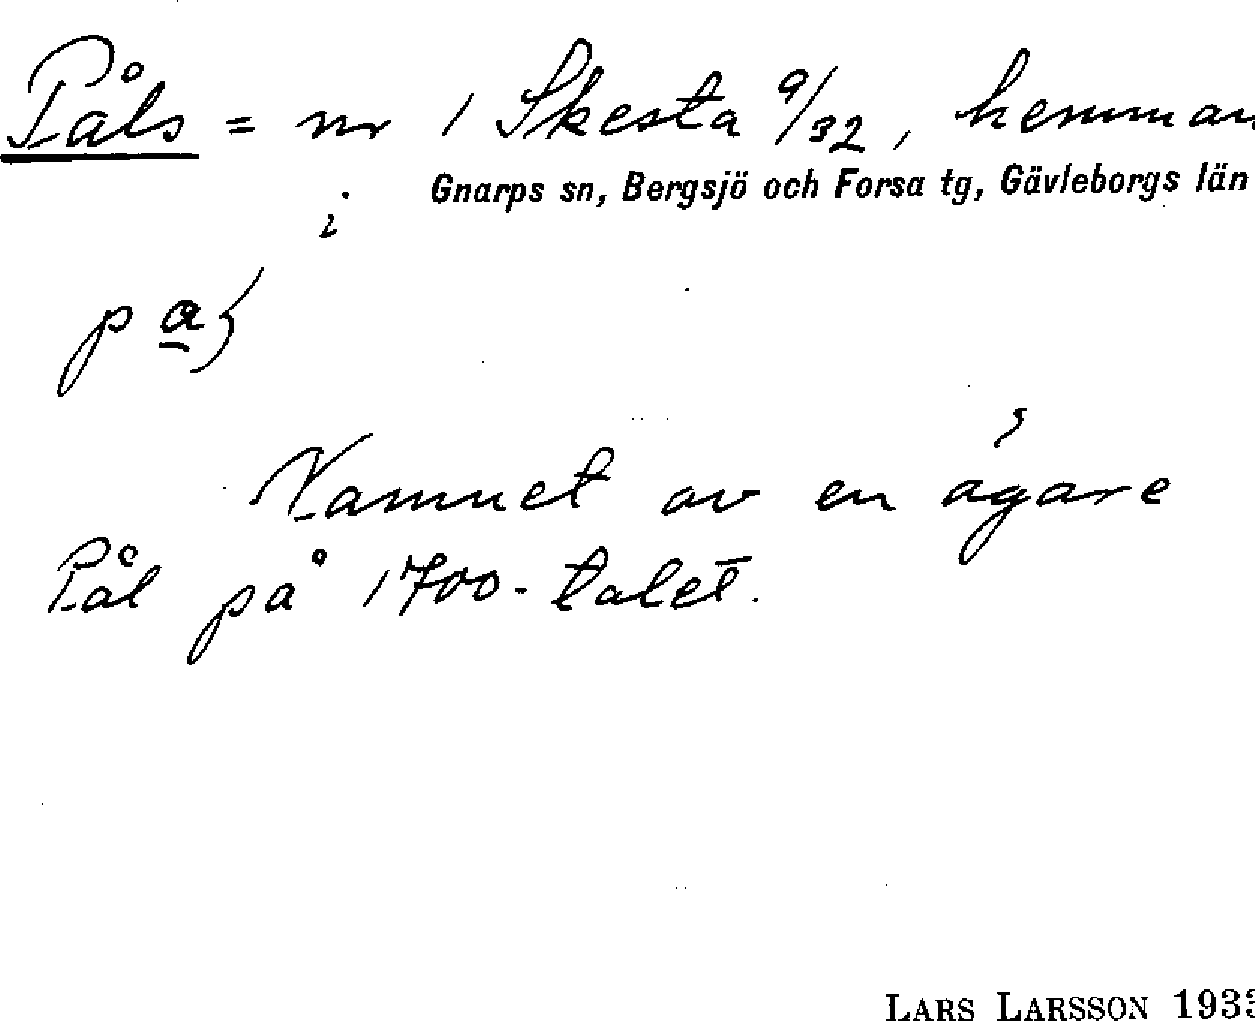 Påls = nr 1 Skesta 9/32, hemman
i Gnarps sn, Bergsjö och Forsa tg, Gävleborgs län
Namnet av en ägare
Pål på 1700-talet.
LARS LARSSON 193